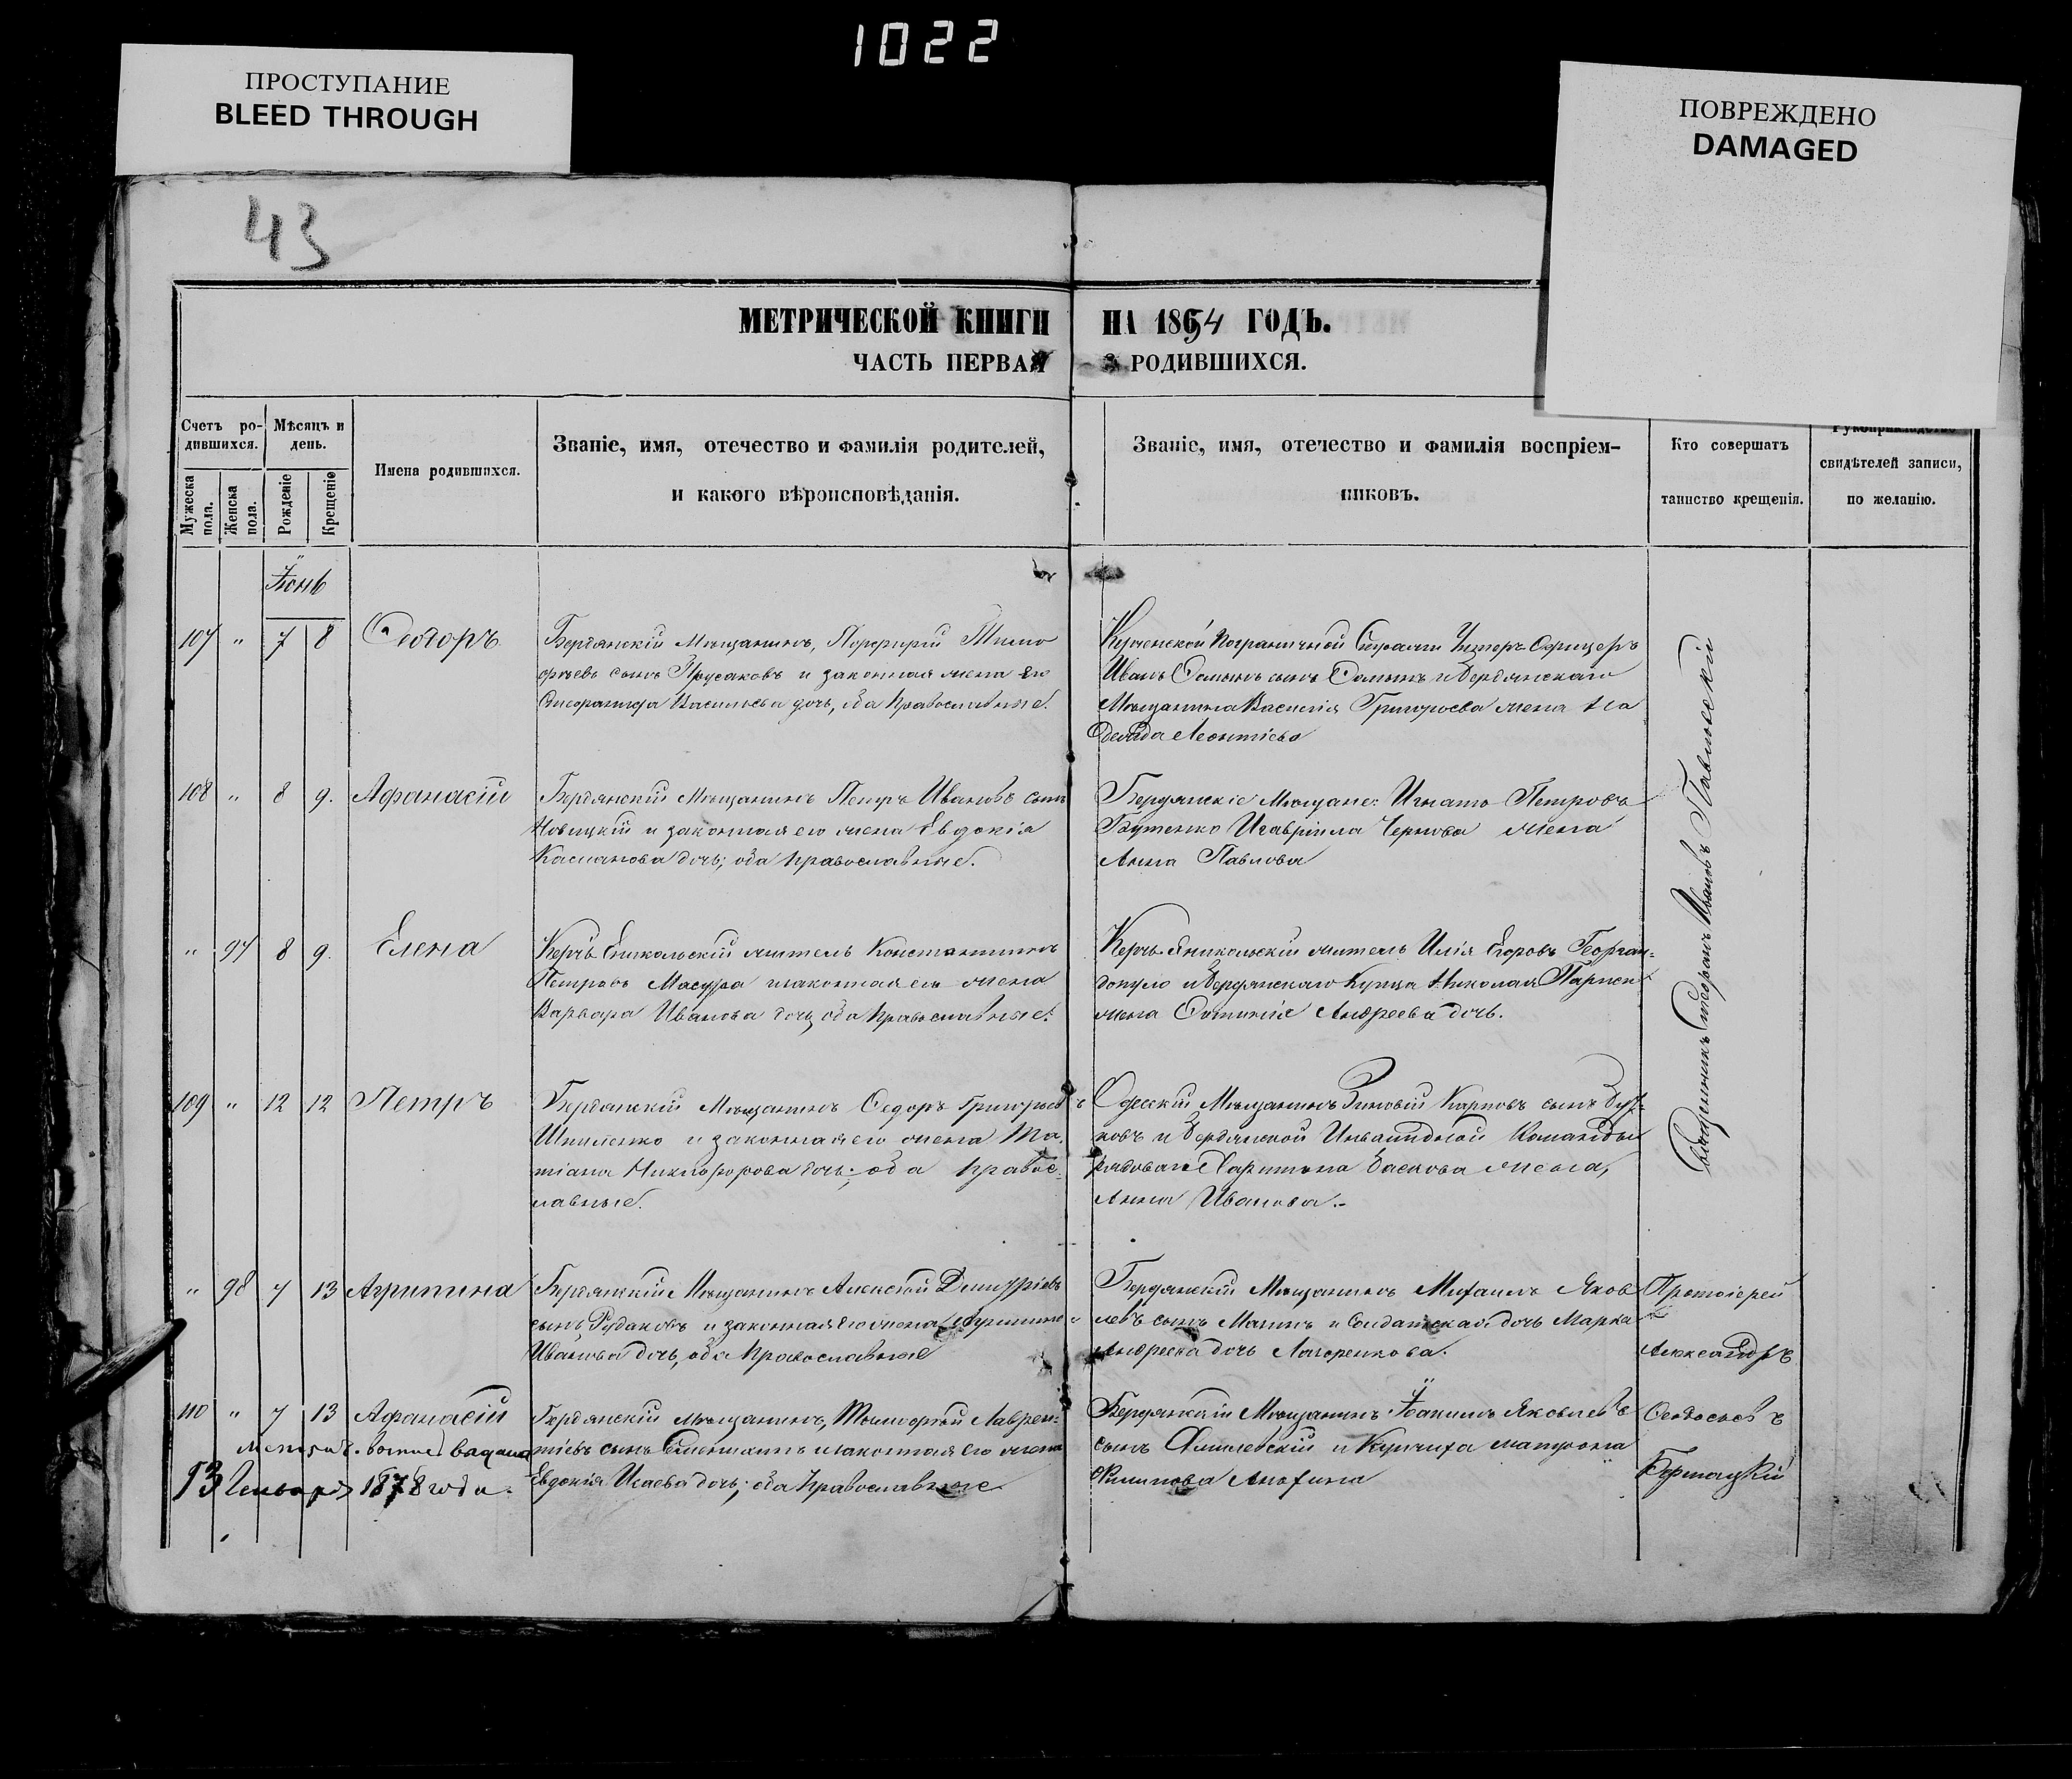 1022
ПРОСТУПАНИЕ
BLEED THROUGH
ПОВРЕЖДЕНО
DAMAGED
43
МЕТРИЧЕСКОЙ КНИГИ НА 1854 ГОДЪ.
ЧАСТЬ ПЕРВАЯ РОДИВШИХСЯ.
Счетъ ро-
дившихся.
Мужеска
пола.
Женска
пола.
Мѣсяцъ и
день.
Рожденіе
Крещеніе
Имена родившихся.
Званіе, имя, отечество и фамилія родителей,
и какого вѣроисповѣданія.
Званіе, имя, отечество и фамилія воспріем-
никовъ.
Кто совершатъ
таинство крещенія.
Рукоприкладство
свидѣтелей записи,
по желанію.
Іюнь
107 " 7 8 Ѳеодоръ
Бердянскій Мѣщанинъ, Порфирій Тимо
ѳѣевъ сынъ Прусаковъ и законная жена его
Васильева дочь, оба Православные.
Пограничной Стражи Унтеръ Офицеръ
Иванъ сынъ и Бердянскаго
Мѣщанина Василія Григорьева жена
Леонтіева
108 " 8 9. Афанасій
Бердянскій Мѣщанинъ Петръ Ивановъ сынъ
Новицкій и законная его жена Евдокія
Касианова дочь; оба православные.
Бердянскіе Мѣщане: Игнатъ Петровъ
Бутенко и Гавріила Чернова жена
Анна Павлова
" 97 8 9. Елена
Керчь Еникольскій житель Константинъ
Петровъ и законная его жена
Варвара Иванова дочь оба православные.
Керчь Еникольскій житель Илія Егоровъ Георган-
допуло и Бердянскаго Купца Николая
жена Андреева дочь.
109 " 12 12 Петръ
Бердянскій Мѣщанинъ Ѳедоръ Григорьевъ
и законная его жена Та
тіана Никифорова дочь; оба правос-
лавные.
Одесскій Мѣщанинъ Зиновій Карповъ сынъ
ковъ и Бердянской Инвалидной Команды
рядоваго жена,
Анна Иванова.
Священникъ Стефанъ Ивановъ Павловскій
" 98 7 13 Агрипина
Бердянскій Мѣщанинъ Алексѣй Дмитріевъ
сынъ Рудаковъ и законная его жена
Иванова дочь, оба Православные
Бердянскій Мѣщанинъ Михаилъ Яков
левъ сынъ и Солдатская дочь Марѳа
Андреева дочь
Протоіерей
Александръ
110 " 7 13 Афанасій
Бердянскій мѣщанинъ, Тимоѳей Лаврен-
тіевъ сынъ и законная его жена
Евдокія Исаева дочь; оба Православные.
Бердянскій Мѣщанинъ Іоакимъ Яковлевъ
сынъ и Купчиха матрона
Филипова
Ѳеодосіевъ
выдана
13 Генваря 1878 года.